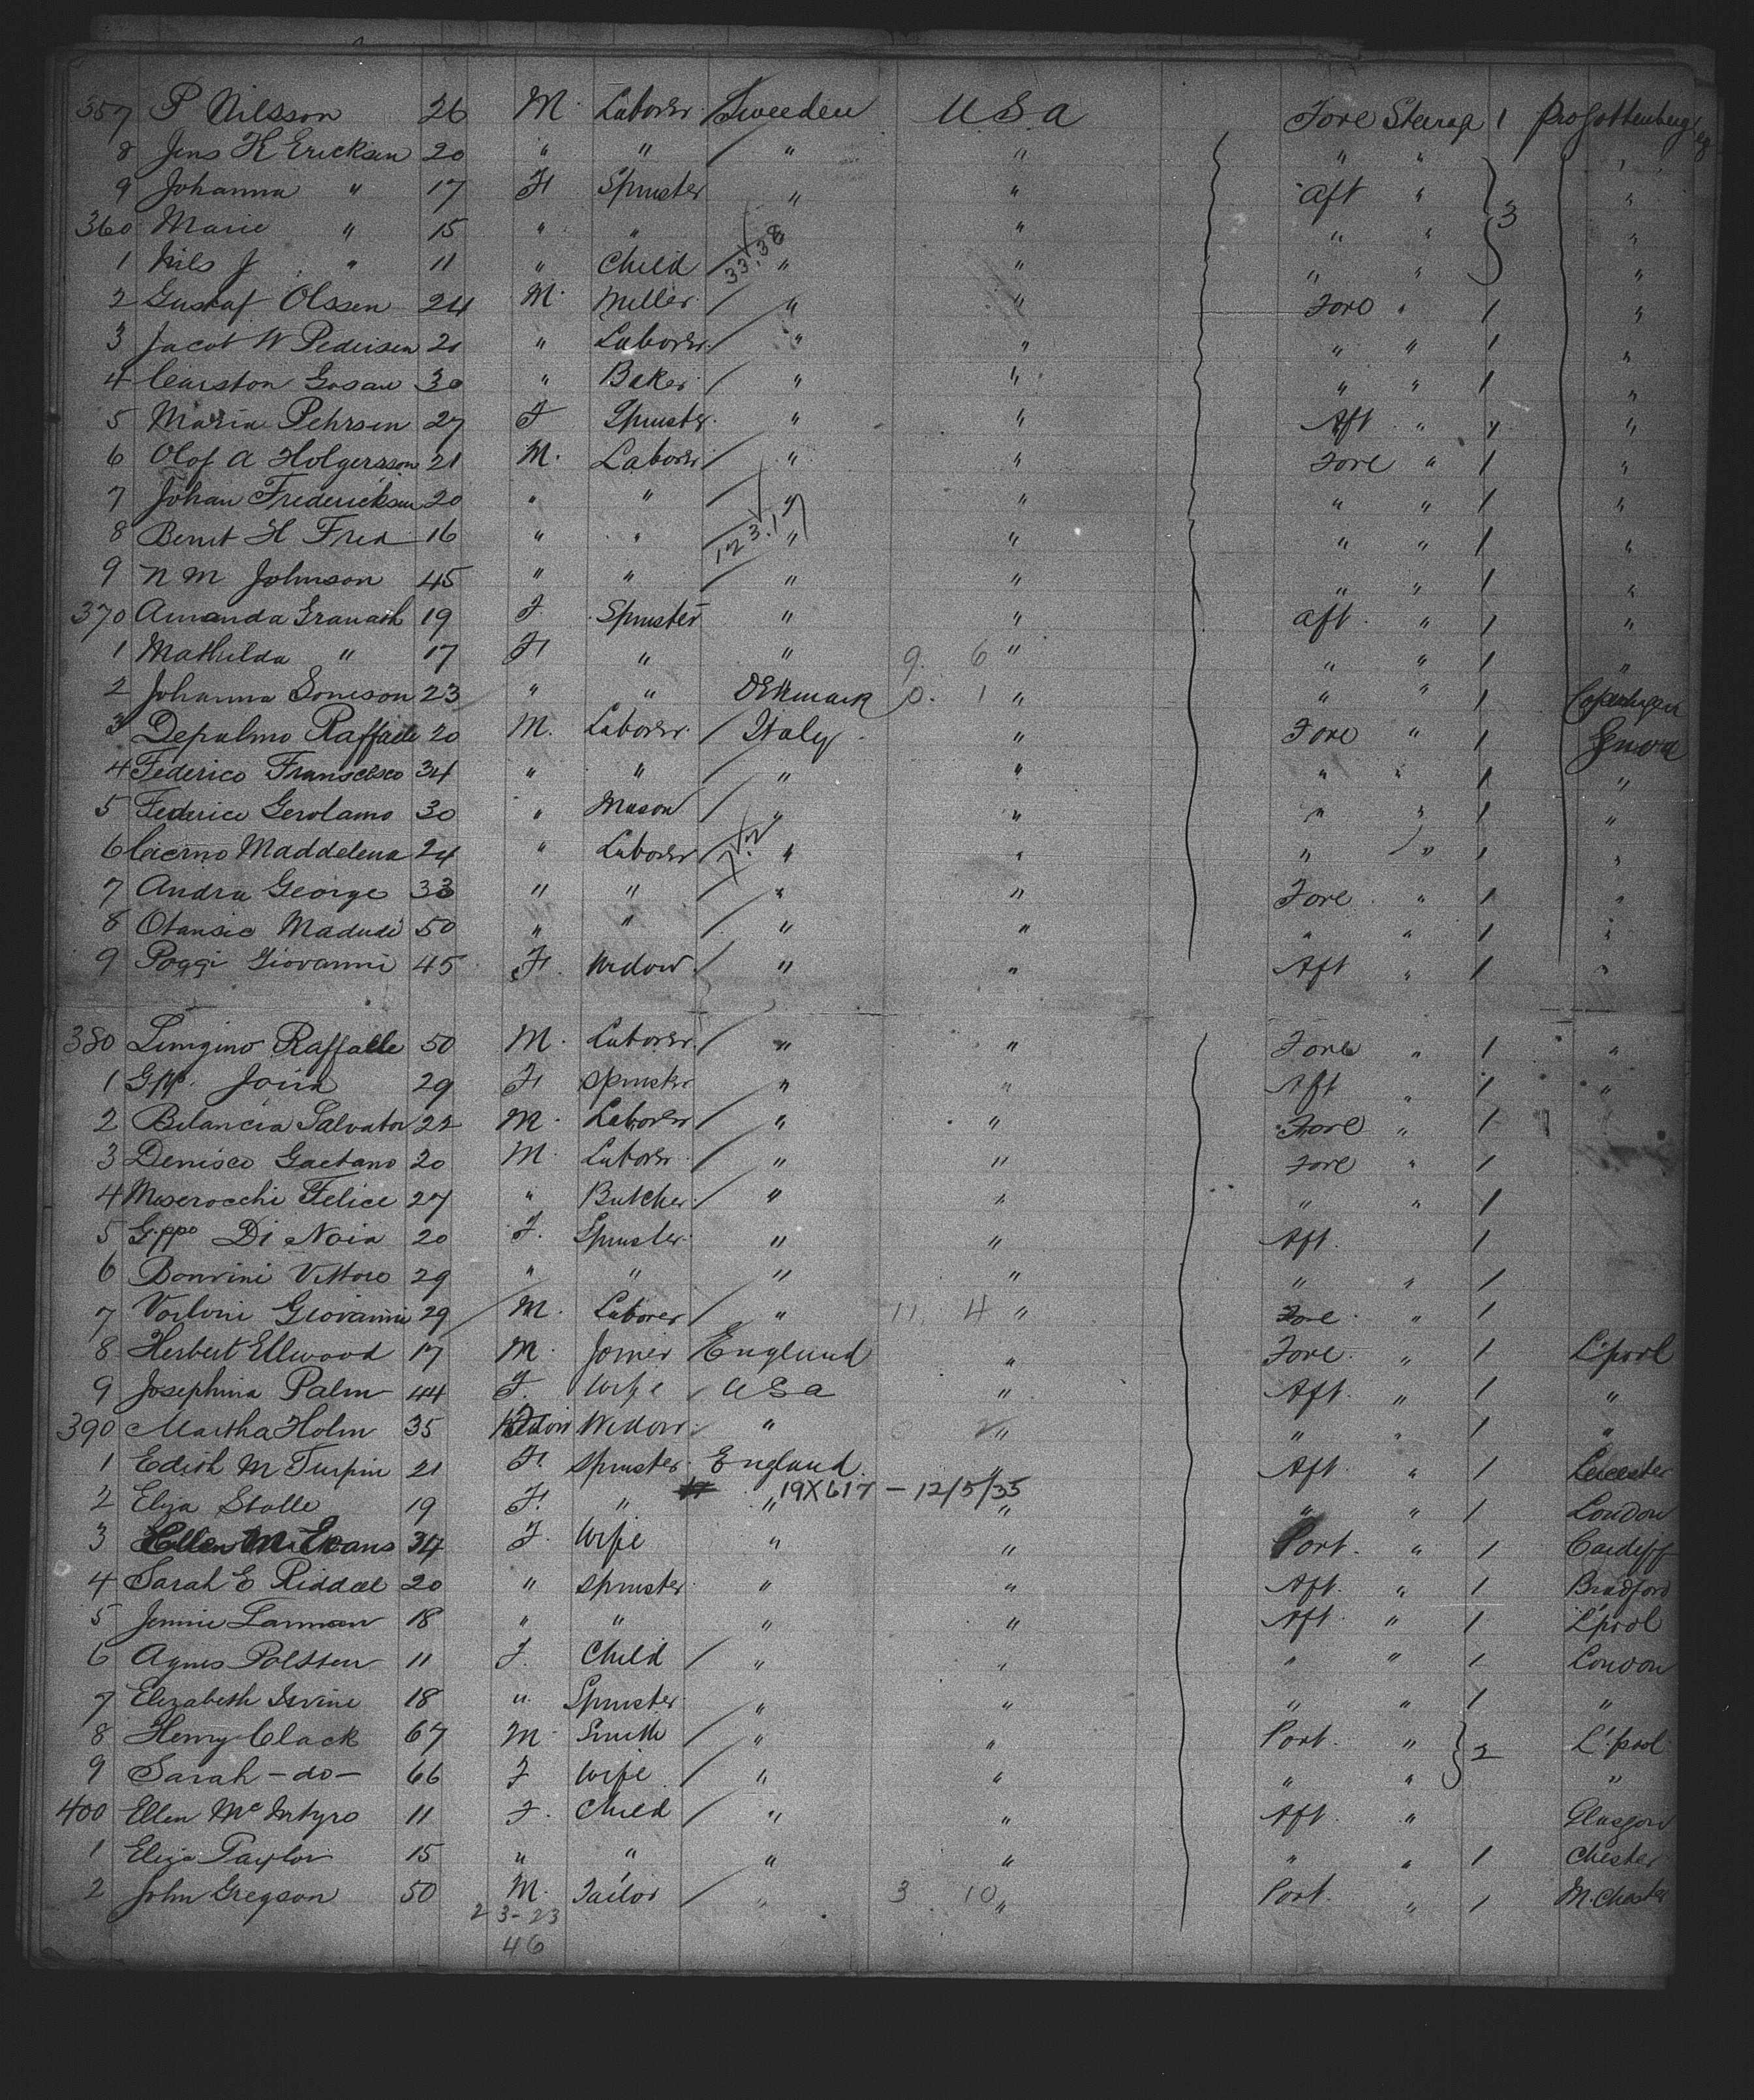 357 P Nilsson 26 M. Laborer / Sweeden U S a Fore Steerage 1 pro Gottenberg
8 Jens K Ericksen 20 " " / " " " "
9 Johanna " 17 F Spinster " " Aft " "
360 Marie " 15 " " " " " " 3 "
1 Nils J " 11 " Child / 33.38 " " " " "
2 Gustaf Olssen 24 M. Miller / " " Fore " 1 "
3 Jacob W Pedersen 21 " Laborer / " " " " 1 "
4 Carston Gosau 30 " Baker / " " " " 1 "
5 Maria Pehrsen 27 F Spinster " " Aft " 1 "
6 Olof a Holgersson 21 M. Laborer / " " Fore " 1 "
7 Johan Fredericksen 20 " " / " " " " 1 "
8 Bernt H Fred 16 " " / " " " " 1 "
9 n m Johnson 45 " " / " " " " 1 "
370 Amanda Granath 19 F. Spinster " " aft. " 1 "
1 Mathilda " 17 F " " 9. 6 " " " 1 "
2 Johanna 23 " " Denmark 0. 1 " " " 1 Copenhagen
3 Depalmo Raffaele 20 M. Laborer / Italy " Fore " 1 Genoa
4 Federico Franscesco 34 " " / " " " " 1 "
5 Federico Gerolamo 30 " Mason / " " " " 1 "
6 Maddelena 24 " Laborer / " " " " 1 "
7 Andra George 33 " " / " " Fore " 1 "
8 Otansic Madudi 50 " " / " " " " 1 "
9 Poggi Giovanni 45 F. Widow / " " Aft " 1 "
380 Raffaele 50 M. Laborer / " " Fore " 1 "
1 Gpp. Joria 29 F Spinster " " Aft " 1 "
2 Bilancia Salvator 22 M. Laborer / " " Fore " 1
3 Denisco Gaetano 20 M. Laborer / " " Fore " 1
4 Miserocchi Felice 27 " Butcher / " " " " 1
5 G.ppo Di Noia 20 F. Spinster " " Aft. 1
6 Bonvini Vittore 29 " " " " " " 1
7 Giovanni 29 / M. Laborer / " 11. 4 " Fore " 1
8 Herbert Ellwood 17 M. Joiner / England " Fore. " 1 L'pool
9 Josephina Palm 44 F. Wife / U S a " Aft. " 1 "
390 Martha Holm 35 Widow " " " " 1 "
1 Edith M Turpin 21 F. Spinster England " Aft. " 1 Leicester
19X617 - 12/5/35
2 Eliza Stolle 19 F. " " " " " 1 London
3 Ellen M Evans 34 F. Wife " " Port. " 1 Cardiff
4 Sarah E Riddel 20 " Spinster " " Aft. " 1 Bradford
5 Jennie Larman 18 " " " " Aft " 1 L'pool
6 Agnes Polsten 11 F. Child / " " " " 1 London
7 Elizabeth Irvine 18 " Spinster " " " " 1 "
8 Henry Clack 67 M. Smith / " " Port. " 2 L'pool
9 Sarah - do - 66 F Wife / " " " " "
400 Ellen Mc Intyre 11 F. Child / " " Aft. " Glasgow
1 Eliza Taylor 15 " " " " " " 1 Chester
2 John Gregson 50 M. Tailor / " 3 10 " Port. " 1 M.Chester
23-23
46